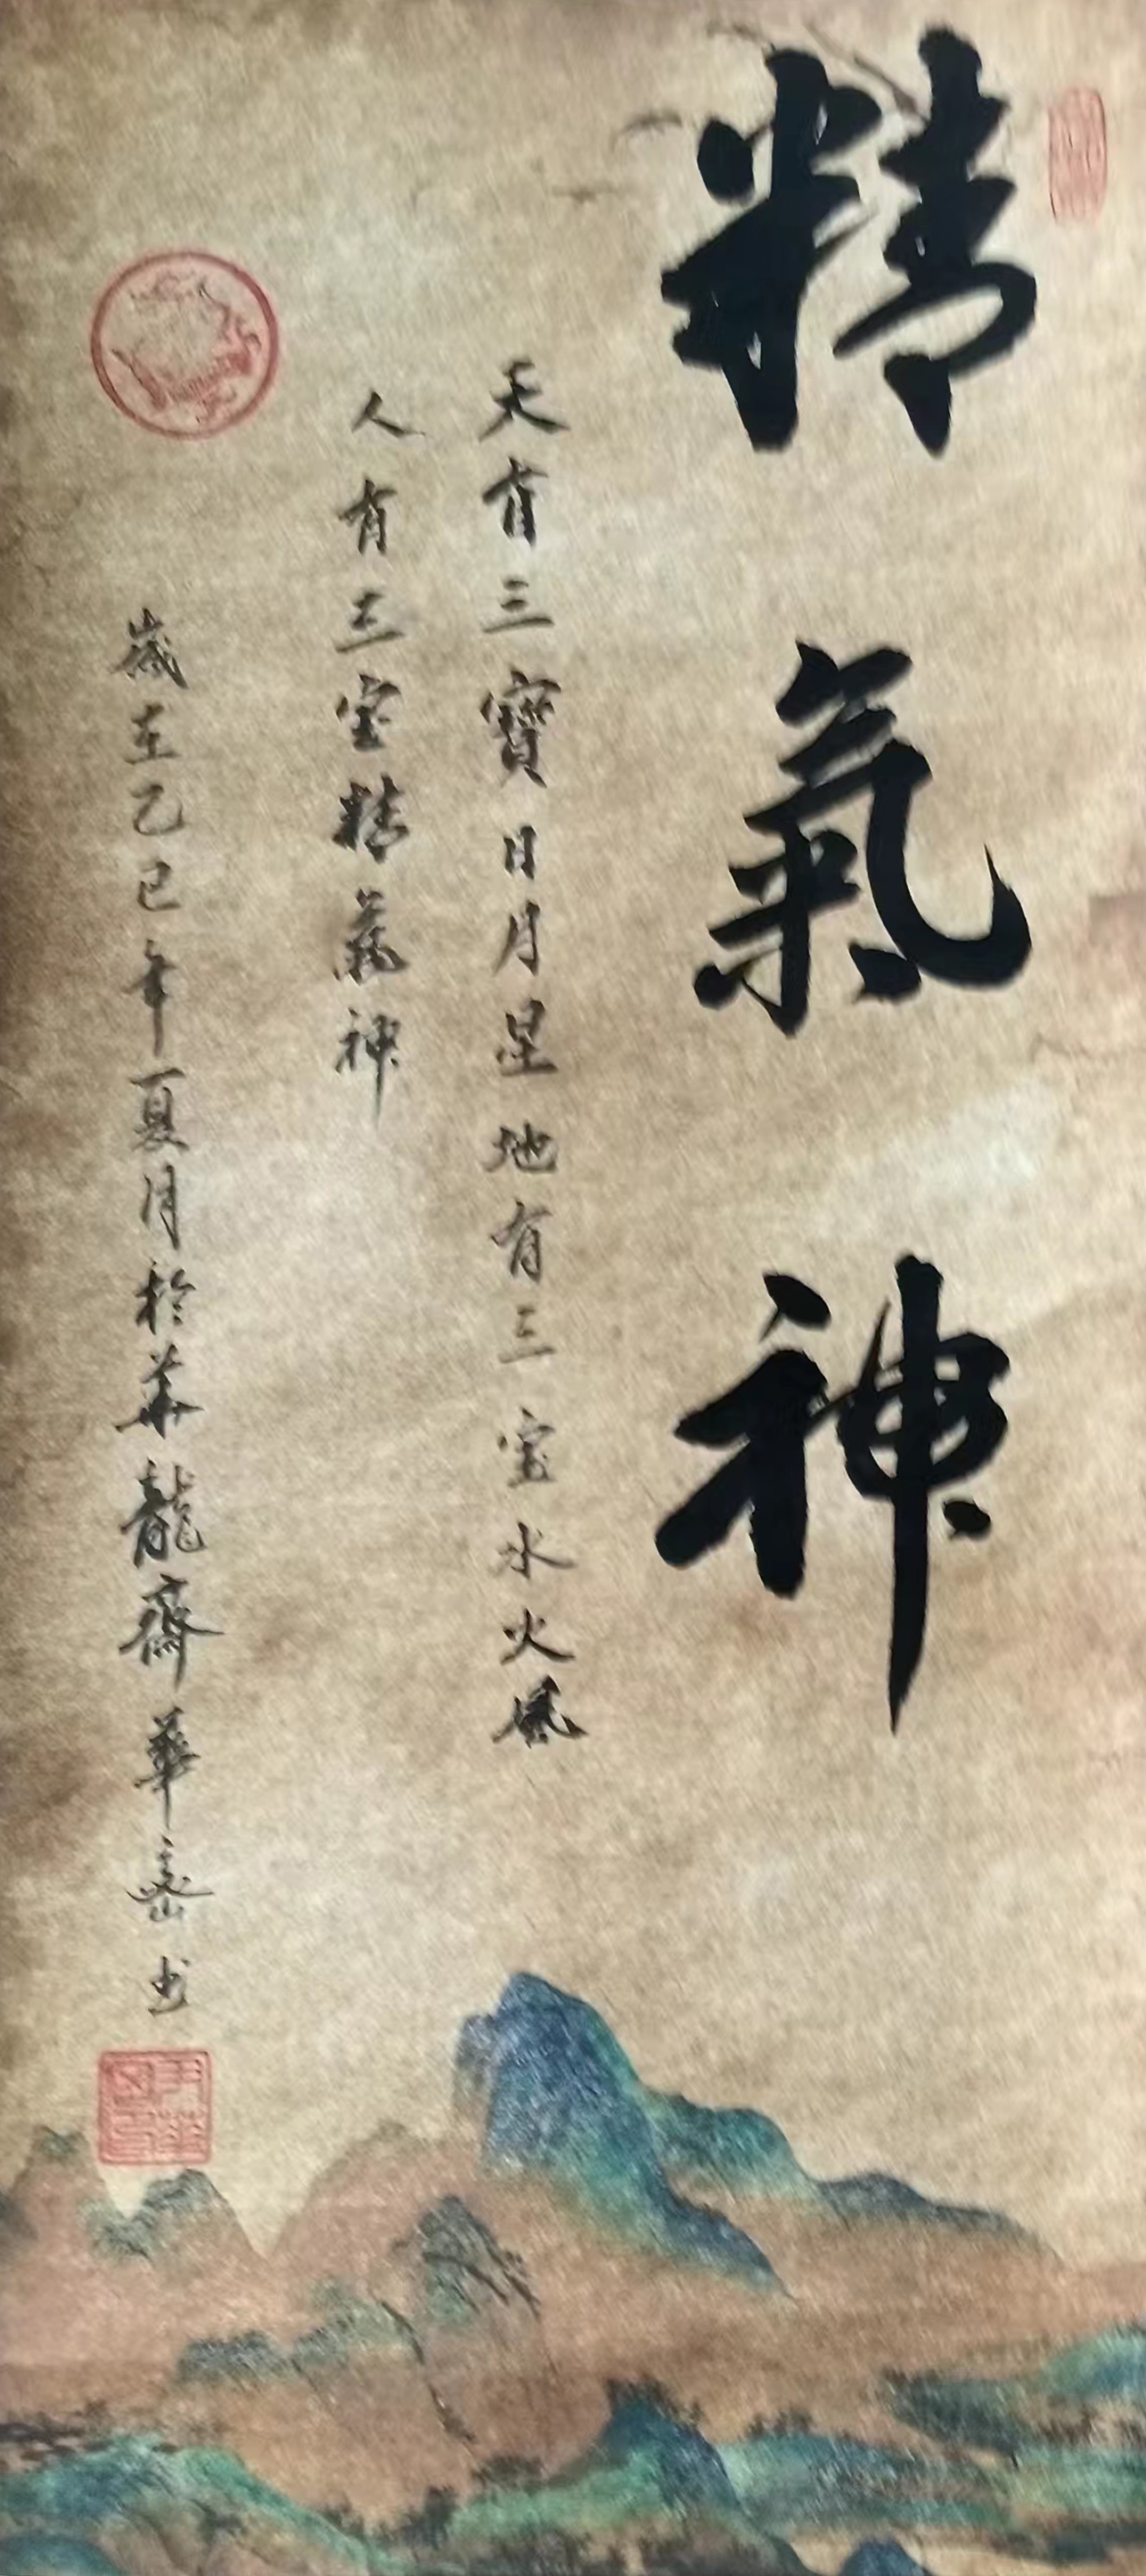 精氣神
天有三寶日月星地有三宝水火風
人有三宝精氣神
歲在乙巳年夏月於華龍齋華岳书